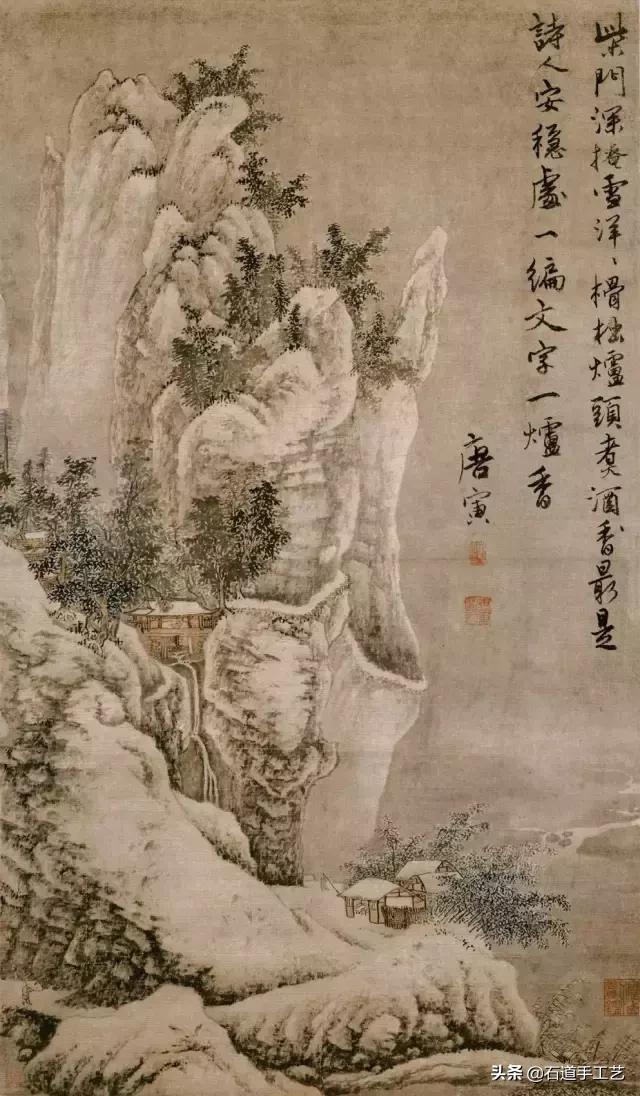 柴門深掩雪洋〻榾柮爐頭煮酒香最是
詩人安穩處一編文字一爐香
唐寅
头条 @石道手工艺